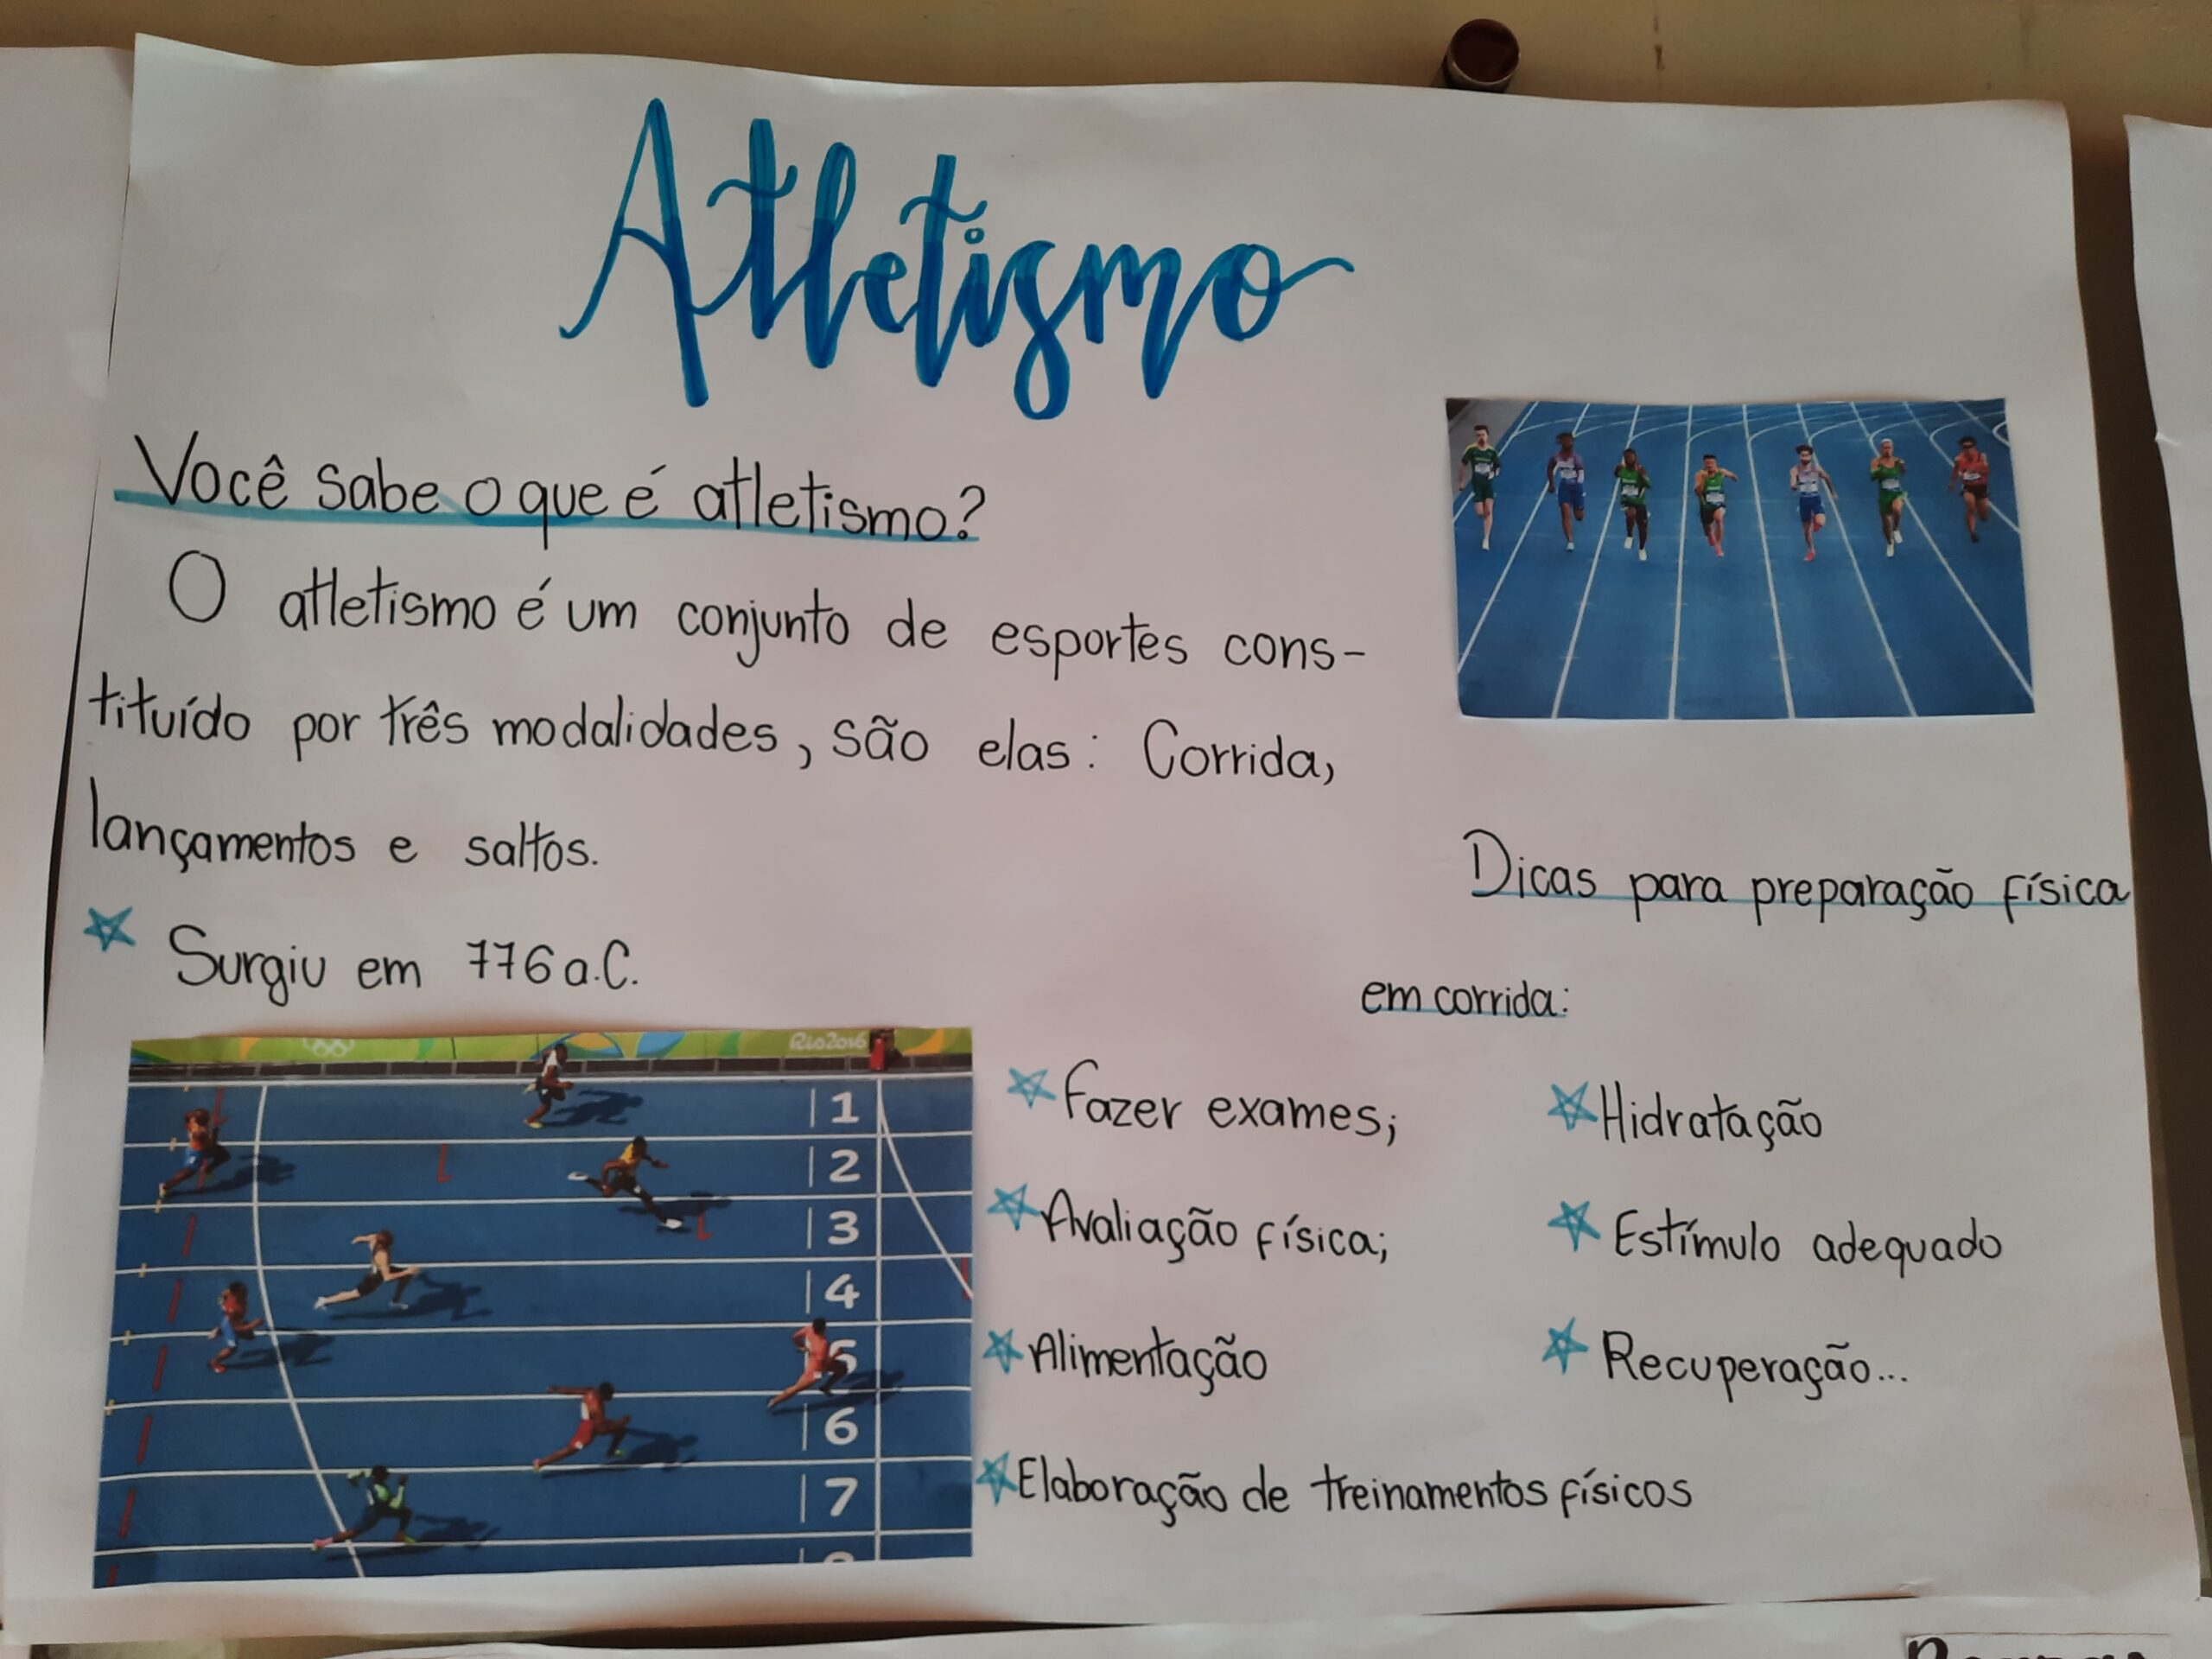 Atletismo
Você sabe o que é atletismo?
O atletismo é um conjunto de esportes cons-
tituído por três modalidades, são elas: Corrida,
lançamentos e saltos.
Surgiu em 776 a.C.
Rio2016
1
2
3
4
5
6
7
Dicas para preparação física
em corrida:
Fazer exames;
Avaliação física;
Alimentação
Elaboração de treinamentos físicos
Hidratação
Estímulo adequado
Recuperação...